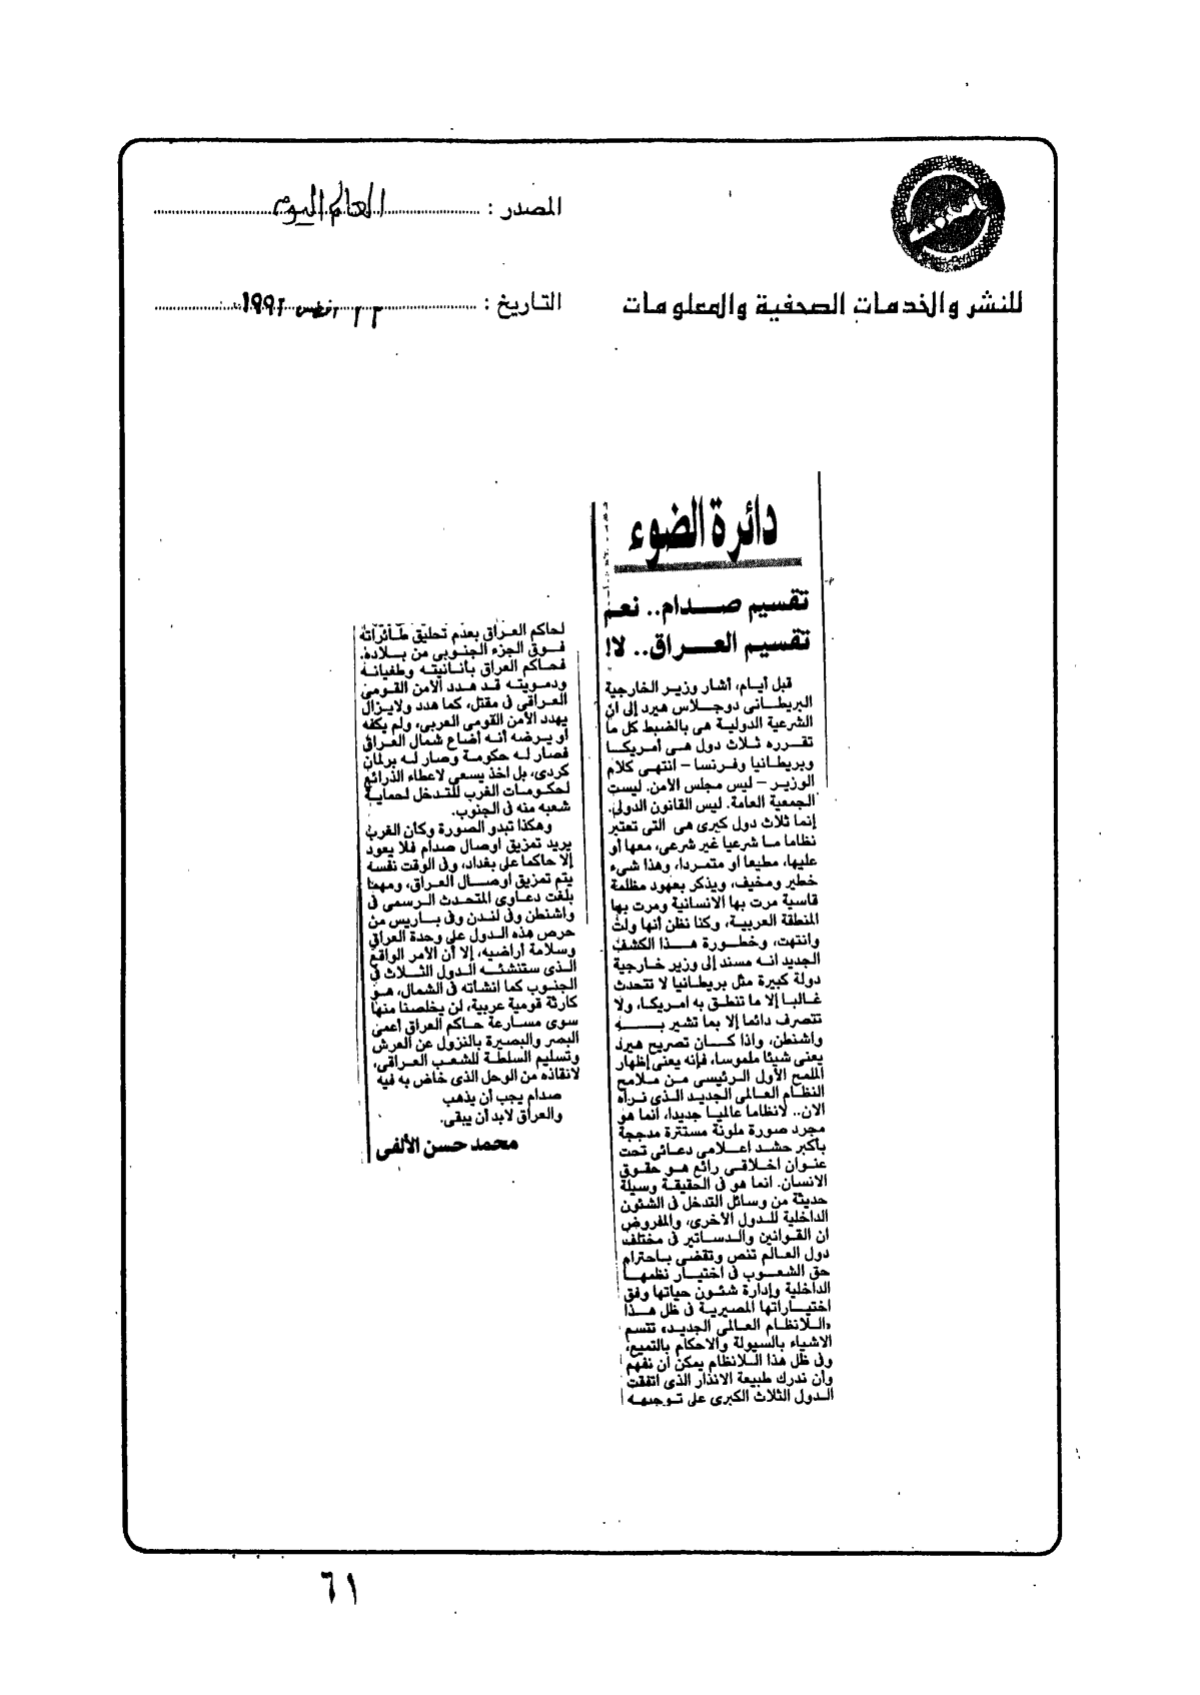 المصدر : العالم اليوم
للنشر والخدمات الصحفية والمعلومات
التاريخ : ٢٢ اغسطس ١٩٩٢
دائرة الضوء
تقسيم صدام.. نعم
تقسيم العراق.. لا!
قبل أيام، أشار وزير الخارجية
البريطانى دوجلاس هيرد إلى ان
الشرعية الدولية هى بالضبط كل ما
تقرره ثلاث دول هى أمريكا
وبريطانيا وفرنسا – انتهى كلام
الوزير – ليس مجلس الأمن. ليست
الجمعية العامة. ليس القانون الدولى.
إنما ثلاث دول كبرى هى التى تعتبر
نظاما ما شرعيا غير شرعى، معها أو
عليها، مطيعا او متمردا، وهذا شىء
خطير ومخيف، ويذكر بعهود مظلمة
قاسية مرت بها الانسانية ومرت بها
المنطقة العربية، وكنا نظن أنها ولت
وانتهت، وخطورة هذا الكشف
الجديد انه مسند إلى وزير خارجية
دولة كبيرة مثل بريطانيا لا تتحدث
غالبا إلا ما تنطق به امريكا، ولا
تتصرف دائما إلا بما تشير به
واشنطن، واذا كان تصريح هيرد
يعنى شيئا ملموسا، فإنه يعنى إظهار
الملمح الأول الرئيسى من ملامح
النظام العالمى الجديد الذى نراه
الان.. لانظاما عالميا جديدا، انما هو
مجرد صورة ملونة مستترة مدججة
بأكبر حشد اعلامى دعائى تحت
عنوان اخلاقى رائع هو حقوق
الانسان. انما هو فى الحقيقة وسيلة
حديثة من وسائل التدخل فى الشئون
الداخلية للدول الأخرى، والمفروض
ان القوانين والدساتير فى مختلف
دول العالم تنص وتقضى باحترام
حق الشعوب فى اختيار نظمها
الداخلية وإدارة شئون حياتها وفق
اختياراتها المصيرية فى ظل هذا
«اللانظام العالمى الجديد» تتسم
الاشياء بالسيولة والاحكام بالتميع،
وفى ظل هذا اللانظام يمكن أن نفهم
وأن ندرك طبيعة الانذار الذى اتفقت
الدول الثلاث الكبرى على توجيهه
لحاكم العراق بعدم تحليق طائراته
فوق الجزء الجنوبى من بلاده.
فحاكم العراق بأنانيته وطغيانه
ودمويته قد هدد الأمن القومى
العراقى فى مقتل، كما هدد ولايزال
يهدد الأمن القومى العربى، ولم يكفه
أو يرضه أنه أضاع شمال العراق
فصار له حكومة وصار له برلمان
كردى، بل اخذ يسعى لاعطاء الذرائع
لحكومات الغرب للتدخل لحماية
شعبه منه فى الجنوب.
وهكذا تبدو الصورة وكأن الغرب
يريد تمزيق اوصال صدام فلا يعود
إلا حاكما على بغداد، وفى الوقت نفسه
يتم تمزيق اوصال العراق، ومهما
بلغت دعاوى المتحدث الرسمى فى
واشنطن وفى لندن وفى باريس من
حرص هذه الدول على وحدة العراق
وسلامة أراضيه، إلا أن الأمر الواقع
الذى ستنشئه الدول الثلاث فى
الجنوب كما انشأته فى الشمال، هو
كارثة قومية عربية، لن يخلصنا منها
سوى مسارعة حاكم العراق أعمى
البصر والبصيرة بالنزول عن العرش
وتسليم السلطة للشعب العراقى،
لانقاذه من الوحل الذى خاض به فيه
صدام يجب أن يذهب
والعراق لابد أن يبقى.
محمد حسن الألفى
٦١